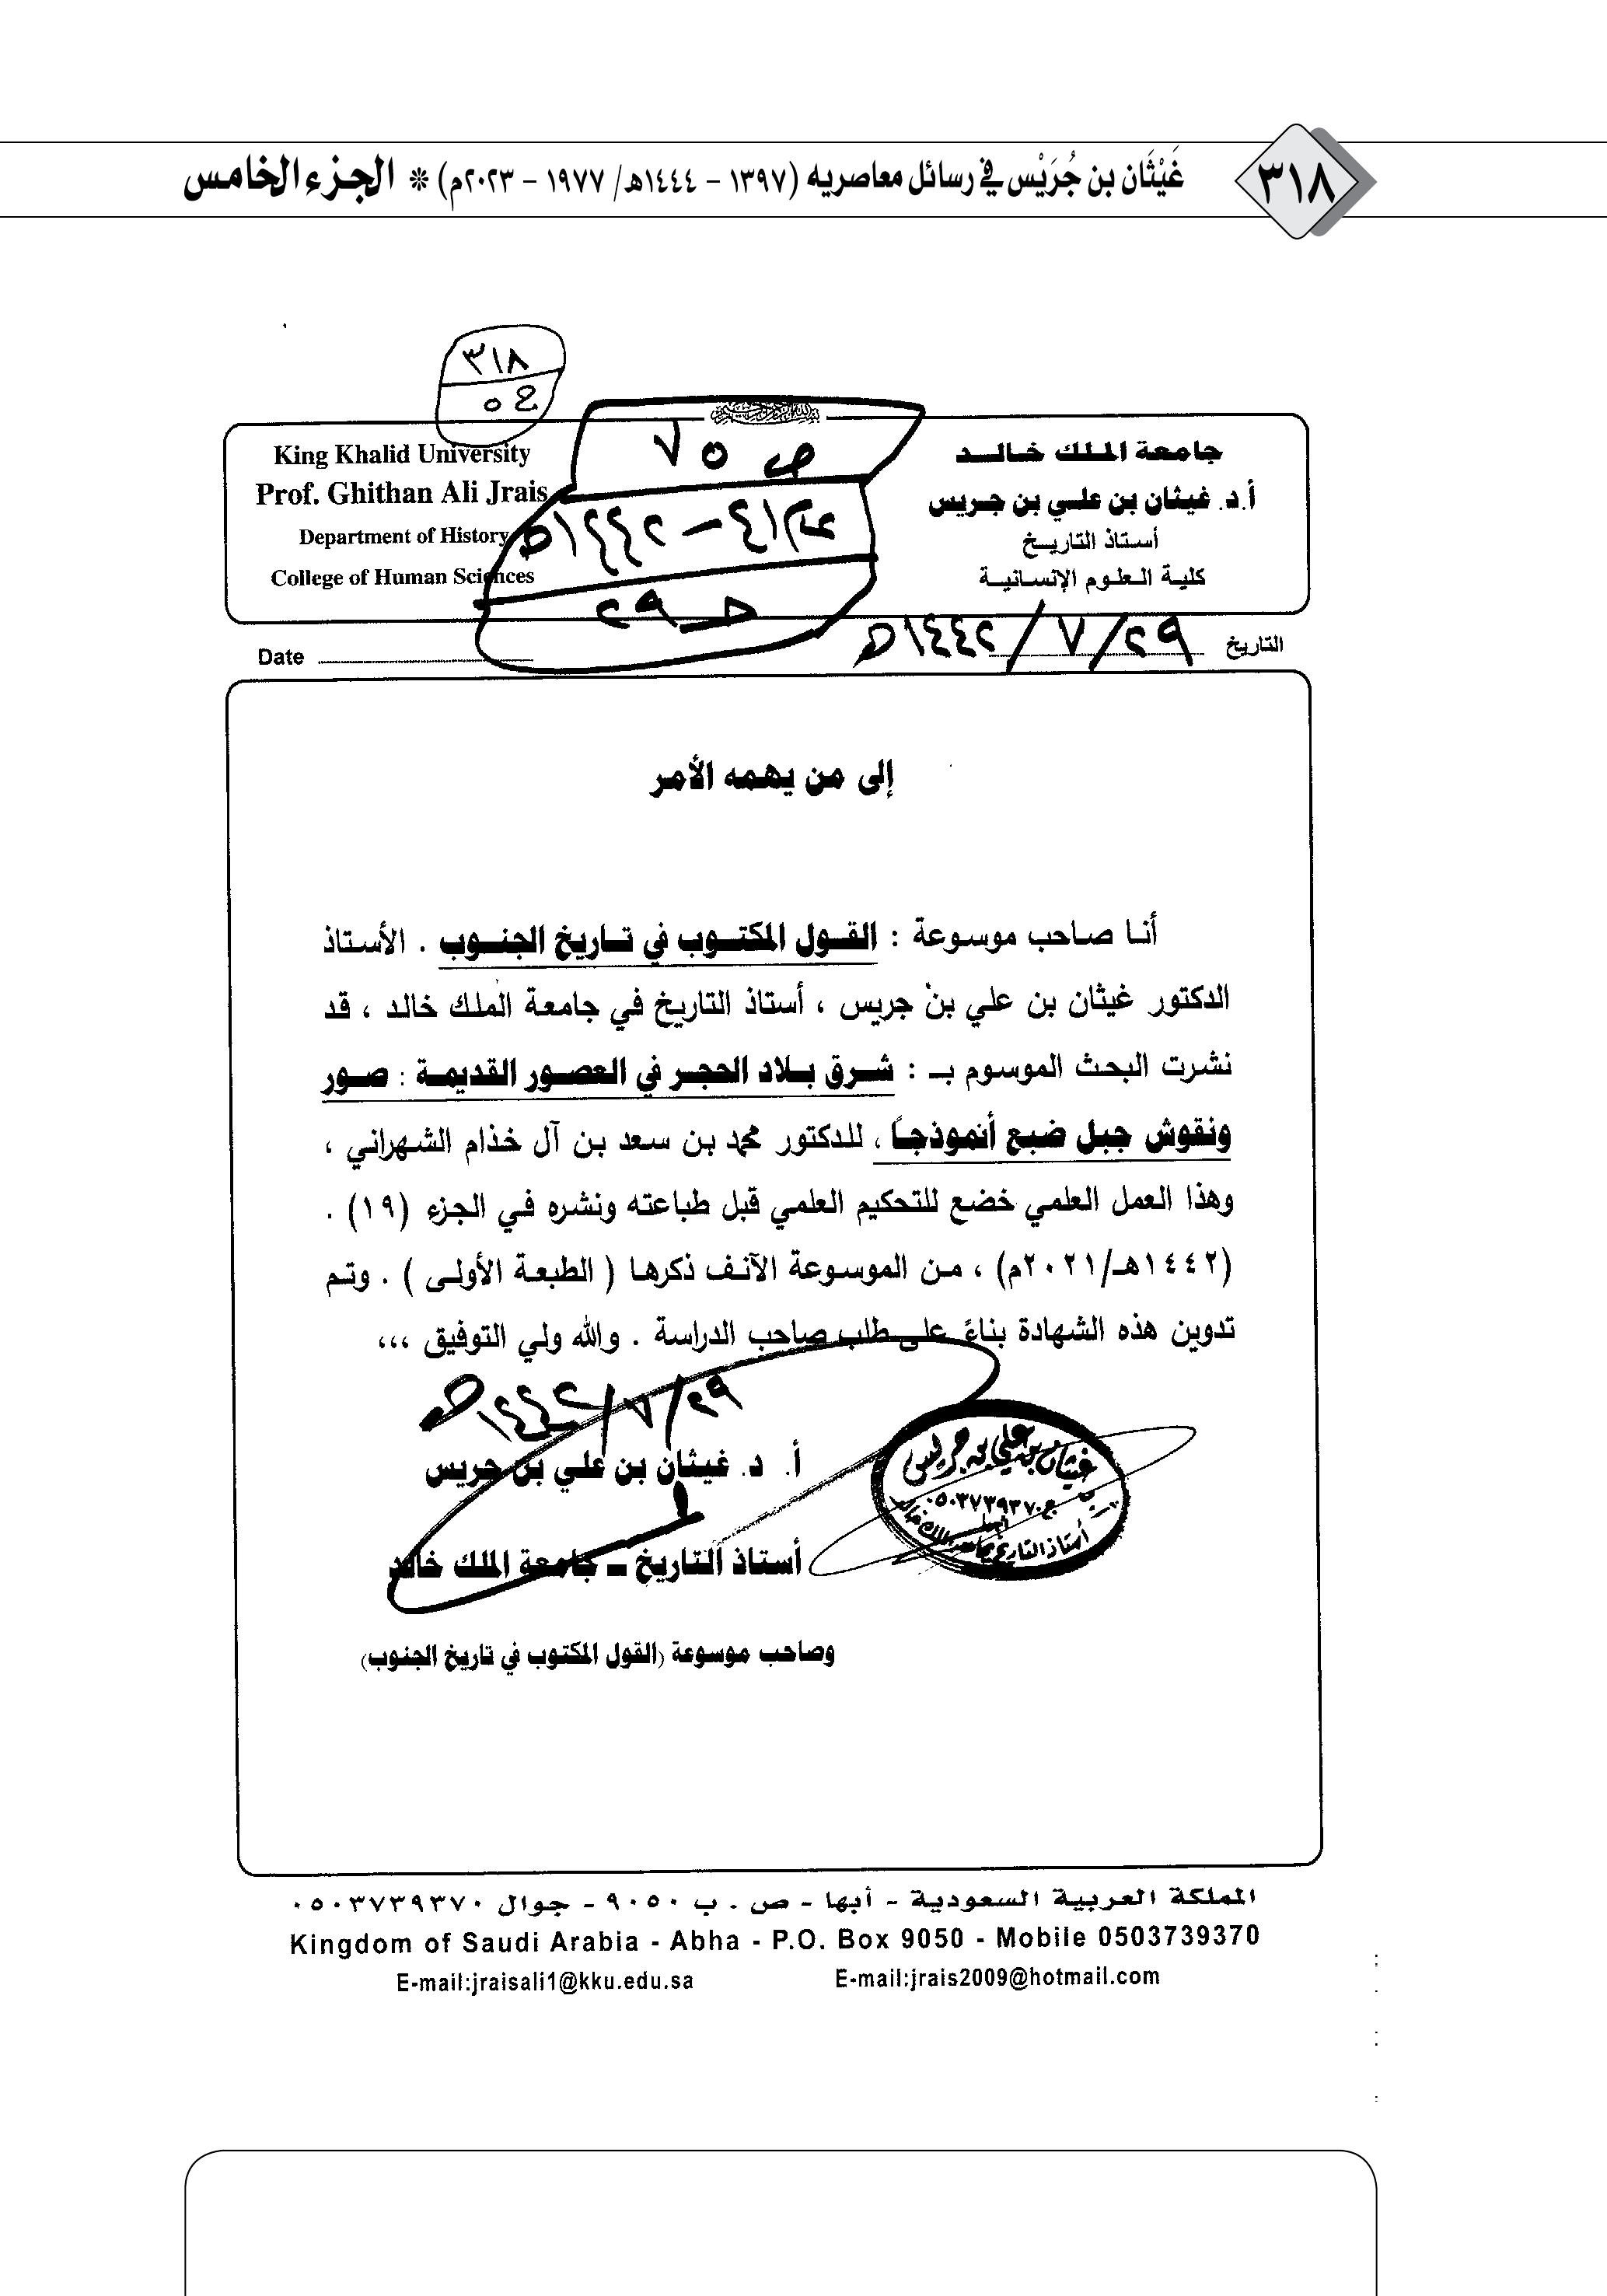 ٣١٨
غَيْثَان بن جُرَيْس في رسائل معاصريه (١٣٩٧ – ١٤٤٤هـ/ ١٩٧٧ – ٢٠٢٣م) ❊ الجزء الخامس
٣١٨
جامعة الملك خالد
أ.د. غيثان بن علي بن جريس
أستاذ التاريخ
كلية العلوم الإنسانية
King Khalid University
Prof. Ghithan Ali Jrais
Department of History
College of Human Sciences
ص ٧٥
٢٩
التاريخ ٢٩/٧/١٤٤٢هـ
Date
إلى من يهمه الأمر
أنا صاحب موسوعة : القول المكتوب في تاريخ الجنوب . الأستاذ
الدكتور غيثان بن علي بن جريس ، أستاذ التاريخ في جامعة الملك خالد ، قد
نشرت البحث الموسوم بـ : شرق بلاد الحجر في العصور القديمة : صور
ونقوش جبل ضبع أنموذجاً ، للدكتور محمد بن سعد بن آل خذام الشهراني ،
وهذا العمل العلمي خضع للتحكيم العلمي قبل طباعته ونشره في الجزء (١٩) .
(١٤٤٢هـ/٢٠٢١م) ، من الموسوعة الآنف ذكرها ( الطبعة الأولى ) . وتم
تدوين هذه الشهادة بناءً على طلب صاحب الدراسة . والله ولي التوفيق ،،،
٢٩/٧/١٤٤٢هـ
أ. د. غيثان بن علي بن جريس
أستاذ التاريخ ــ جامعة الملك خالد
وصاحب موسوعة (القول المكتوب في تاريخ الجنوب)
غيثان بن علي بن جريس
٠٥٠٣٧٣٩٣٧٠
أستاذ التاريخ بجامعة الملك خالد
المملكة العربية السعودية - أبها - ص . ب ٩٠٥٠ - جوال ٠٥٠٣٧٣٩٣٧٠
Kingdom of Saudi Arabia - Abha - P.O. Box 9050 - Mobile 0503739370
E-mail:jraisali1@kku.edu.sa E-mail:jrais2009@hotmail.com